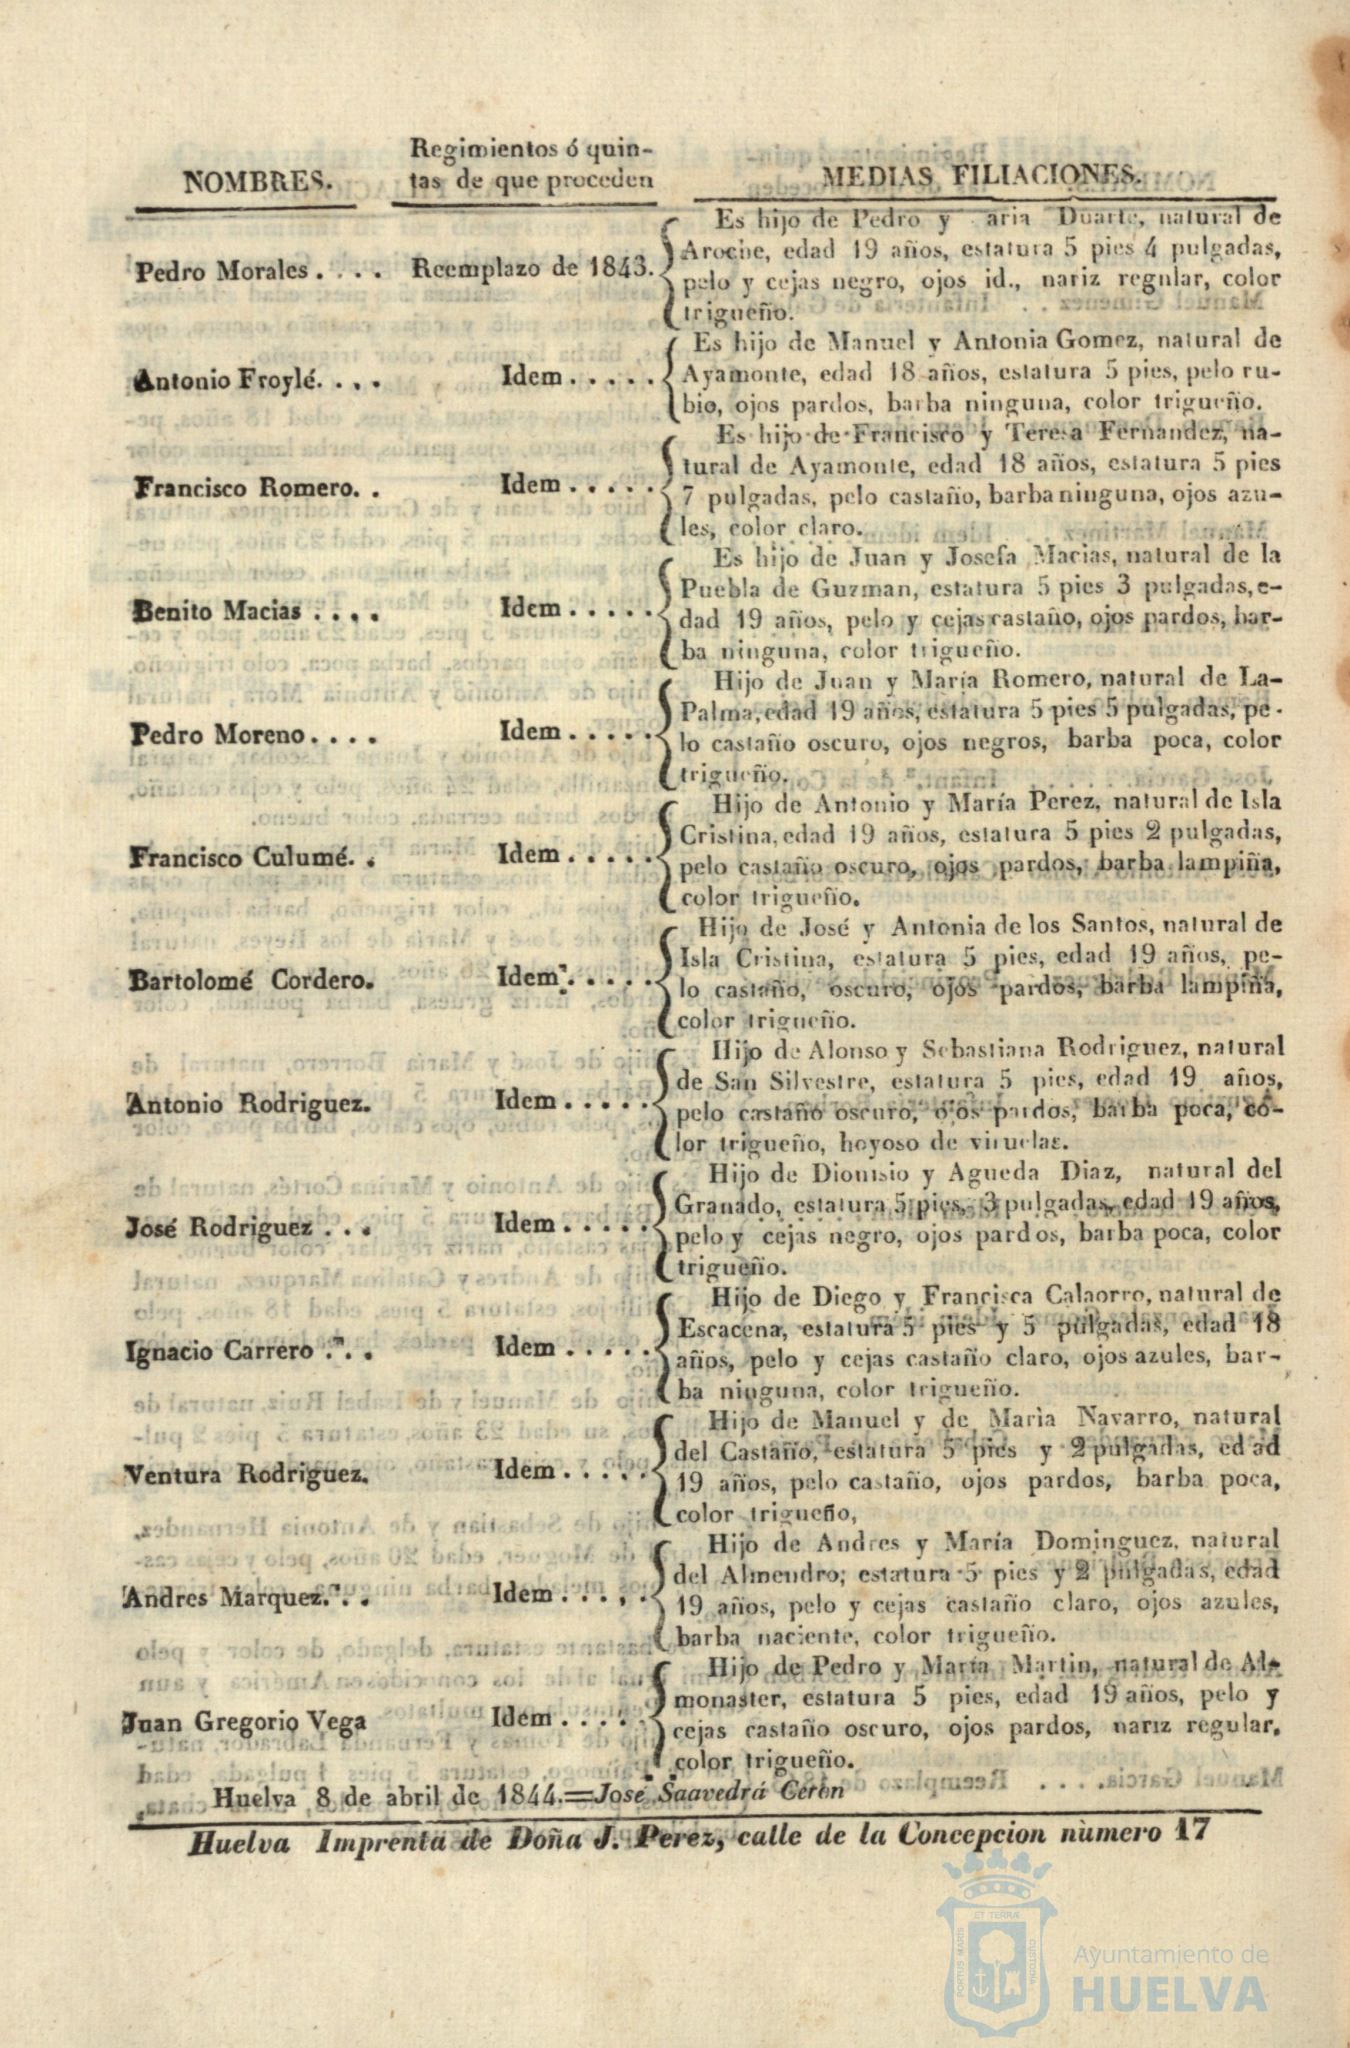 NOMBRES.
Regimientos ó quin-
tas de que proceden
MEDIAS FILIACIONES.
Pedro Morales . . . .
Reemplazo de 1843.
Es hijo de Pedro y aria Duarte, natural de
Aroche, edad 19 años, estatura 5 pies 4 pulgadas,
pelo y cejas negro, ojos id., nariz regular, color
trigueño.
Antonio Froylé. . . .
Idem . . . . .
Es hijo de Manuel y Antonia Gomez, natural de
Ayamonte, edad 18 años, estatura 5 pies, pelo ru-
bio, ojos pardos, barba ninguna, color trigueño.
Francisco Romero. .
Idem . . . . .
Es hijo de Francisco y Teresa Fernandez, na-
tural de Ayamonte, edad 18 años, estatura 5 pies
7 pulgadas, pelo castaño, barba ninguna, ojos azu-
les, color claro.
Benito Macias . . . .
Idem . . . . .
Es hijo de Juan y Josefa Macias, natural de la
Puebla de Guzman, estatura 5 pies 3 pulgadas, e-
dad 19 años, pelo y cejas castaño, ojos pardos, bar-
ba ninguna, color trigueño.
Pedro Moreno. . . .
Idem . . . . .
Hijo de Juan y María Romero, natural de La-
Palma, edad 19 años, estatura 5 pies 5 pulgadas, pe-
lo castaño oscuro, ojos negros, barba poca, color
trigueño.
Francisco Culumé. .
Idem . . . . .
Hijo de Antonio y María Perez, natural de Isla
Cristina, edad 19 años, estatura 5 pies 2 pulgadas,
pelo castaño oscuro, ojos pardos, barba lampiña,
color trigueño.
Bartolomé Cordero.
Idem . . . . .
Hijo de José y Antonia de los Santos, natural de
Isla Cristina, estatura 5 pies, edad 19 años, pe-
lo castaño, oscuro, ojos pardos, barba lampiña,
color trigueño.
Antonio Rodriguez.
Idem . . . . .
Hijo de Alonso y Sebastiana Rodriguez, natural
de San Silvestre, estatura 5 pies, edad 19 años,
pelo castaño oscuro, ojos pardos, barba poca, co-
lor trigueño, hoyoso de viruelas.
José Rodriguez . . .
Idem . . . . .
Hijo de Dionisio y Agueda Diaz, natural del
Granado, estatura 5 pies, 3 pulgadas, edad 19 años,
pelo y cejas negro, ojos pardos, barba poca, color
trigueño.
Ignacio Carrero . . .
Idem . . . . .
Hijo de Diego y Francisca Calaorro, natural de
Escacena, estatura 5 pies y 5 pulgadas, edad 18
años, pelo y cejas castaño claro, ojos azules, bar-
ba ninguna, color trigueño.
Ventura Rodriguez.
Idem . . . . .
Hijo de Manuel y de Marìa Navarro, natural
del Castaño, estatura 5 pies y 2 pulgadas, edad
19 años, pelo castaño, ojos pardos, barba poca,
color trigueño,
Andres Marquez. . .
Idem . . . . .
Hijo de Andres y María Dominguez, natural
del Almendro; estatura 5 pies y 2 pulgadas, edad
19 años, pelo y cejas castaño claro, ojos azules,
barba naciente, color trigueño.
Juan Gregorio Vega
Idem . . . . .
Hijo de Pedro y María Martin, natural de Al-
monaster, estatura 5 pies, edad 19 años, pelo y
cejas castaño oscuro, ojos pardos, nariz regular,
color trigueño.
Huelva 8 de abril de 1844.=José Saavedrá Ceron
Huelva Imprenta de Doña J. Perez, calle de la Concepcion nùmero 17
ET TERRÆ
PORTUS MARIS
CUSTODIA
Ayuntamiento de
HUELVA